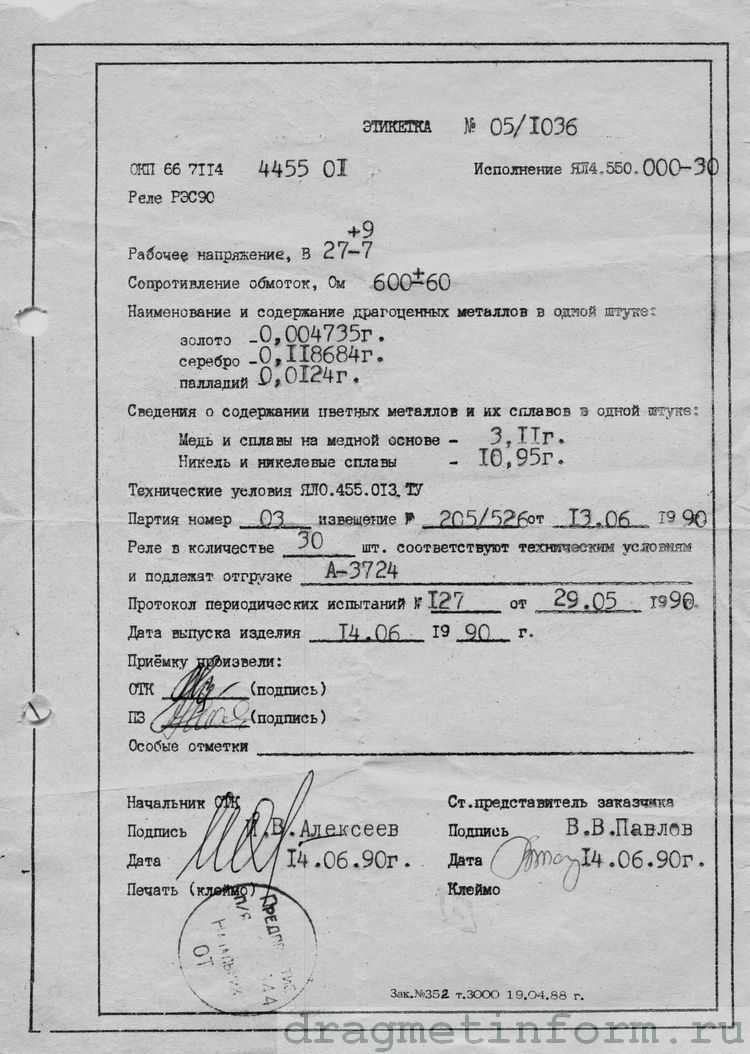 ЭТИКЕТКА № 05/I036
ОКП 66 7II4 4455 0I Исполнение ЯЛ4.550.000-30
Реле РЭС90
+9
Рабочее напряжение, В 27-7
Сопротивление обмоток, Ом 600±60
Наименование и содержание драгоценных металлов в одной штуке:
золото -0,004735г.
серебро -0,II8684г.
палладий -0,0I24г.
Сведения о содержании цветных металлов и их сплавов в одной штуке:
Медь и сплавы на медной основе - 3,IIг.
Никель и никелевые сплавы - I0,95г.
Технические условия ЯЛ0.455.0I3.ТУ
Партия номер 03 извещение № 205/526от I3.06 I990
Реле в количестве 30 шт. соответствуют техническим условиям
и подлежат отгрузке А-3724
Протокол периодических испытаний №I27 от 29.05 I990.
Дата выпуска изделия I4.06 I9 90 г.
Приёмку произвели:
ОТК (подпись)
ПЗ (подпись)
Особые отметки
Начальник ОТК Ст.представитель заказчика
Подпись В.Алексеев Подпись В.В.Павлов
Дата I4.06.90г. Дата I4.06.90г.
Печать (клеймо) Клеймо
П/Я
ОТ
Зак.№352 т.3000 I9.04.88 г.
dragmetinform.ru